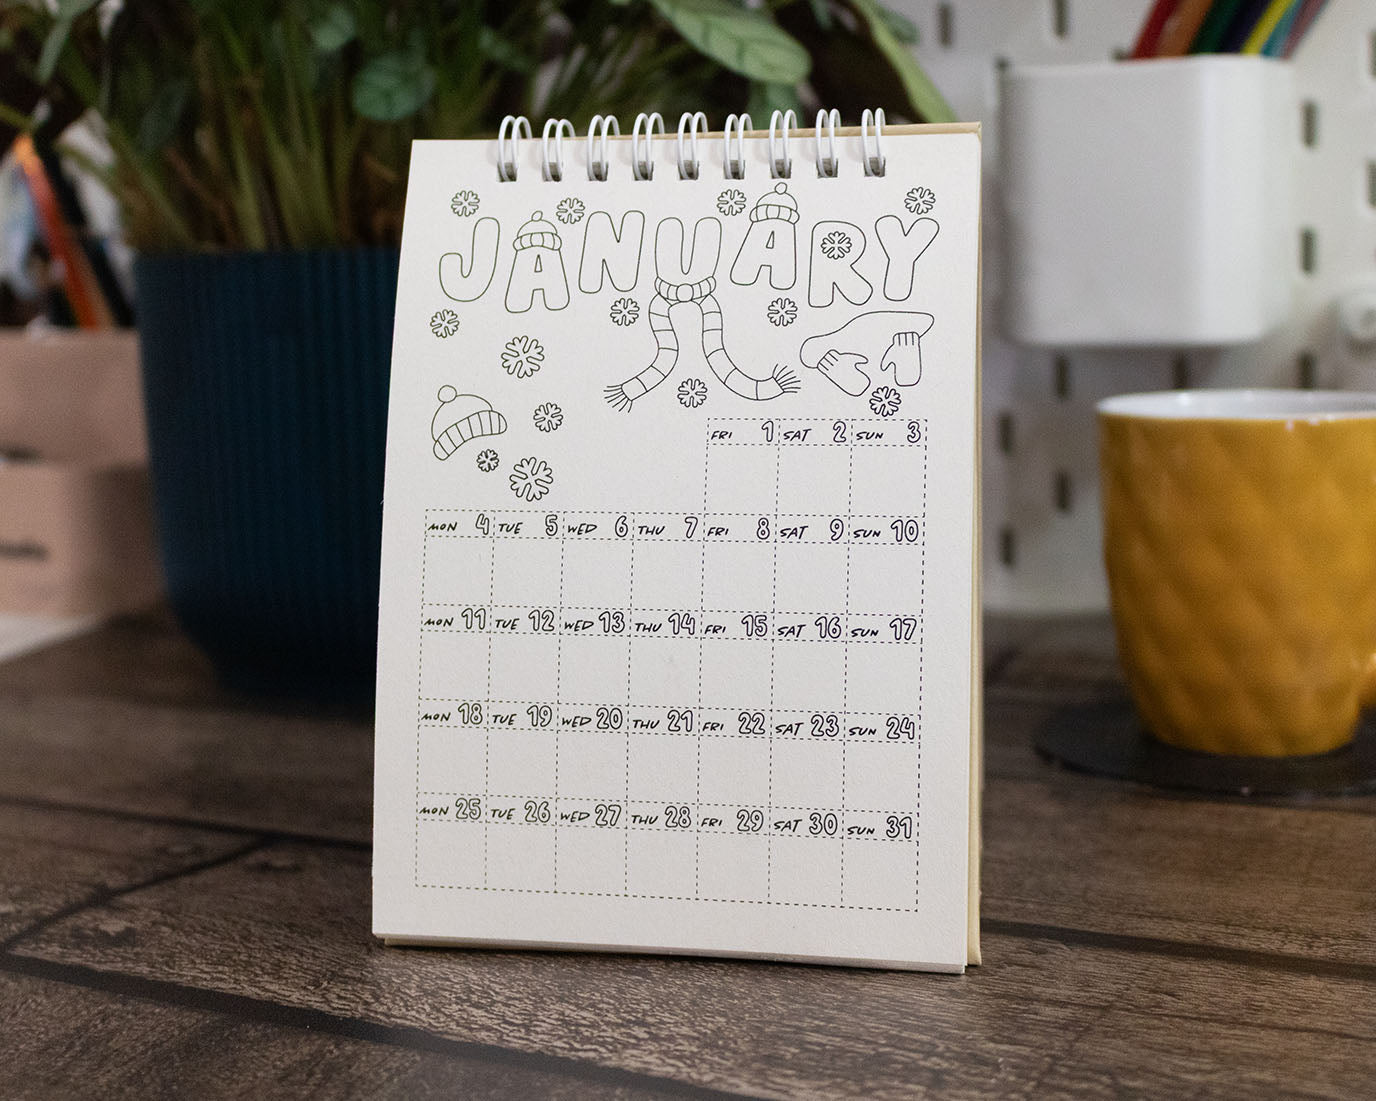 JANUARY
FRI 1 SAT 2 SUN 3
MON 4 TUE 5 WED 6 THU 7 FRI 8 SAT 9 SUN 10
MON 11 TUE 12 WED 13 THU 14 FRI 15 SAT 16 SUN 17
MON 18 TUE 19 WED 20 THU 21 FRI 22 SAT 23 SUN 24
MON 25 TUE 26 WED 27 THU 28 FRI 29 SAT 30 SUN 31